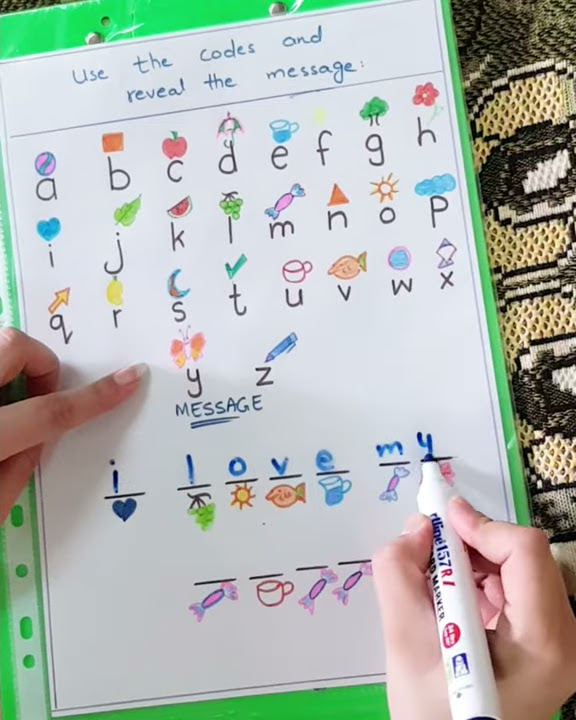 Use the codes and
reveal the message:
a b c d e f g h
i j k l m n o p
q r s t u v w x
y z
MESSAGE
i love my
artline 157R
BOARD MARKER